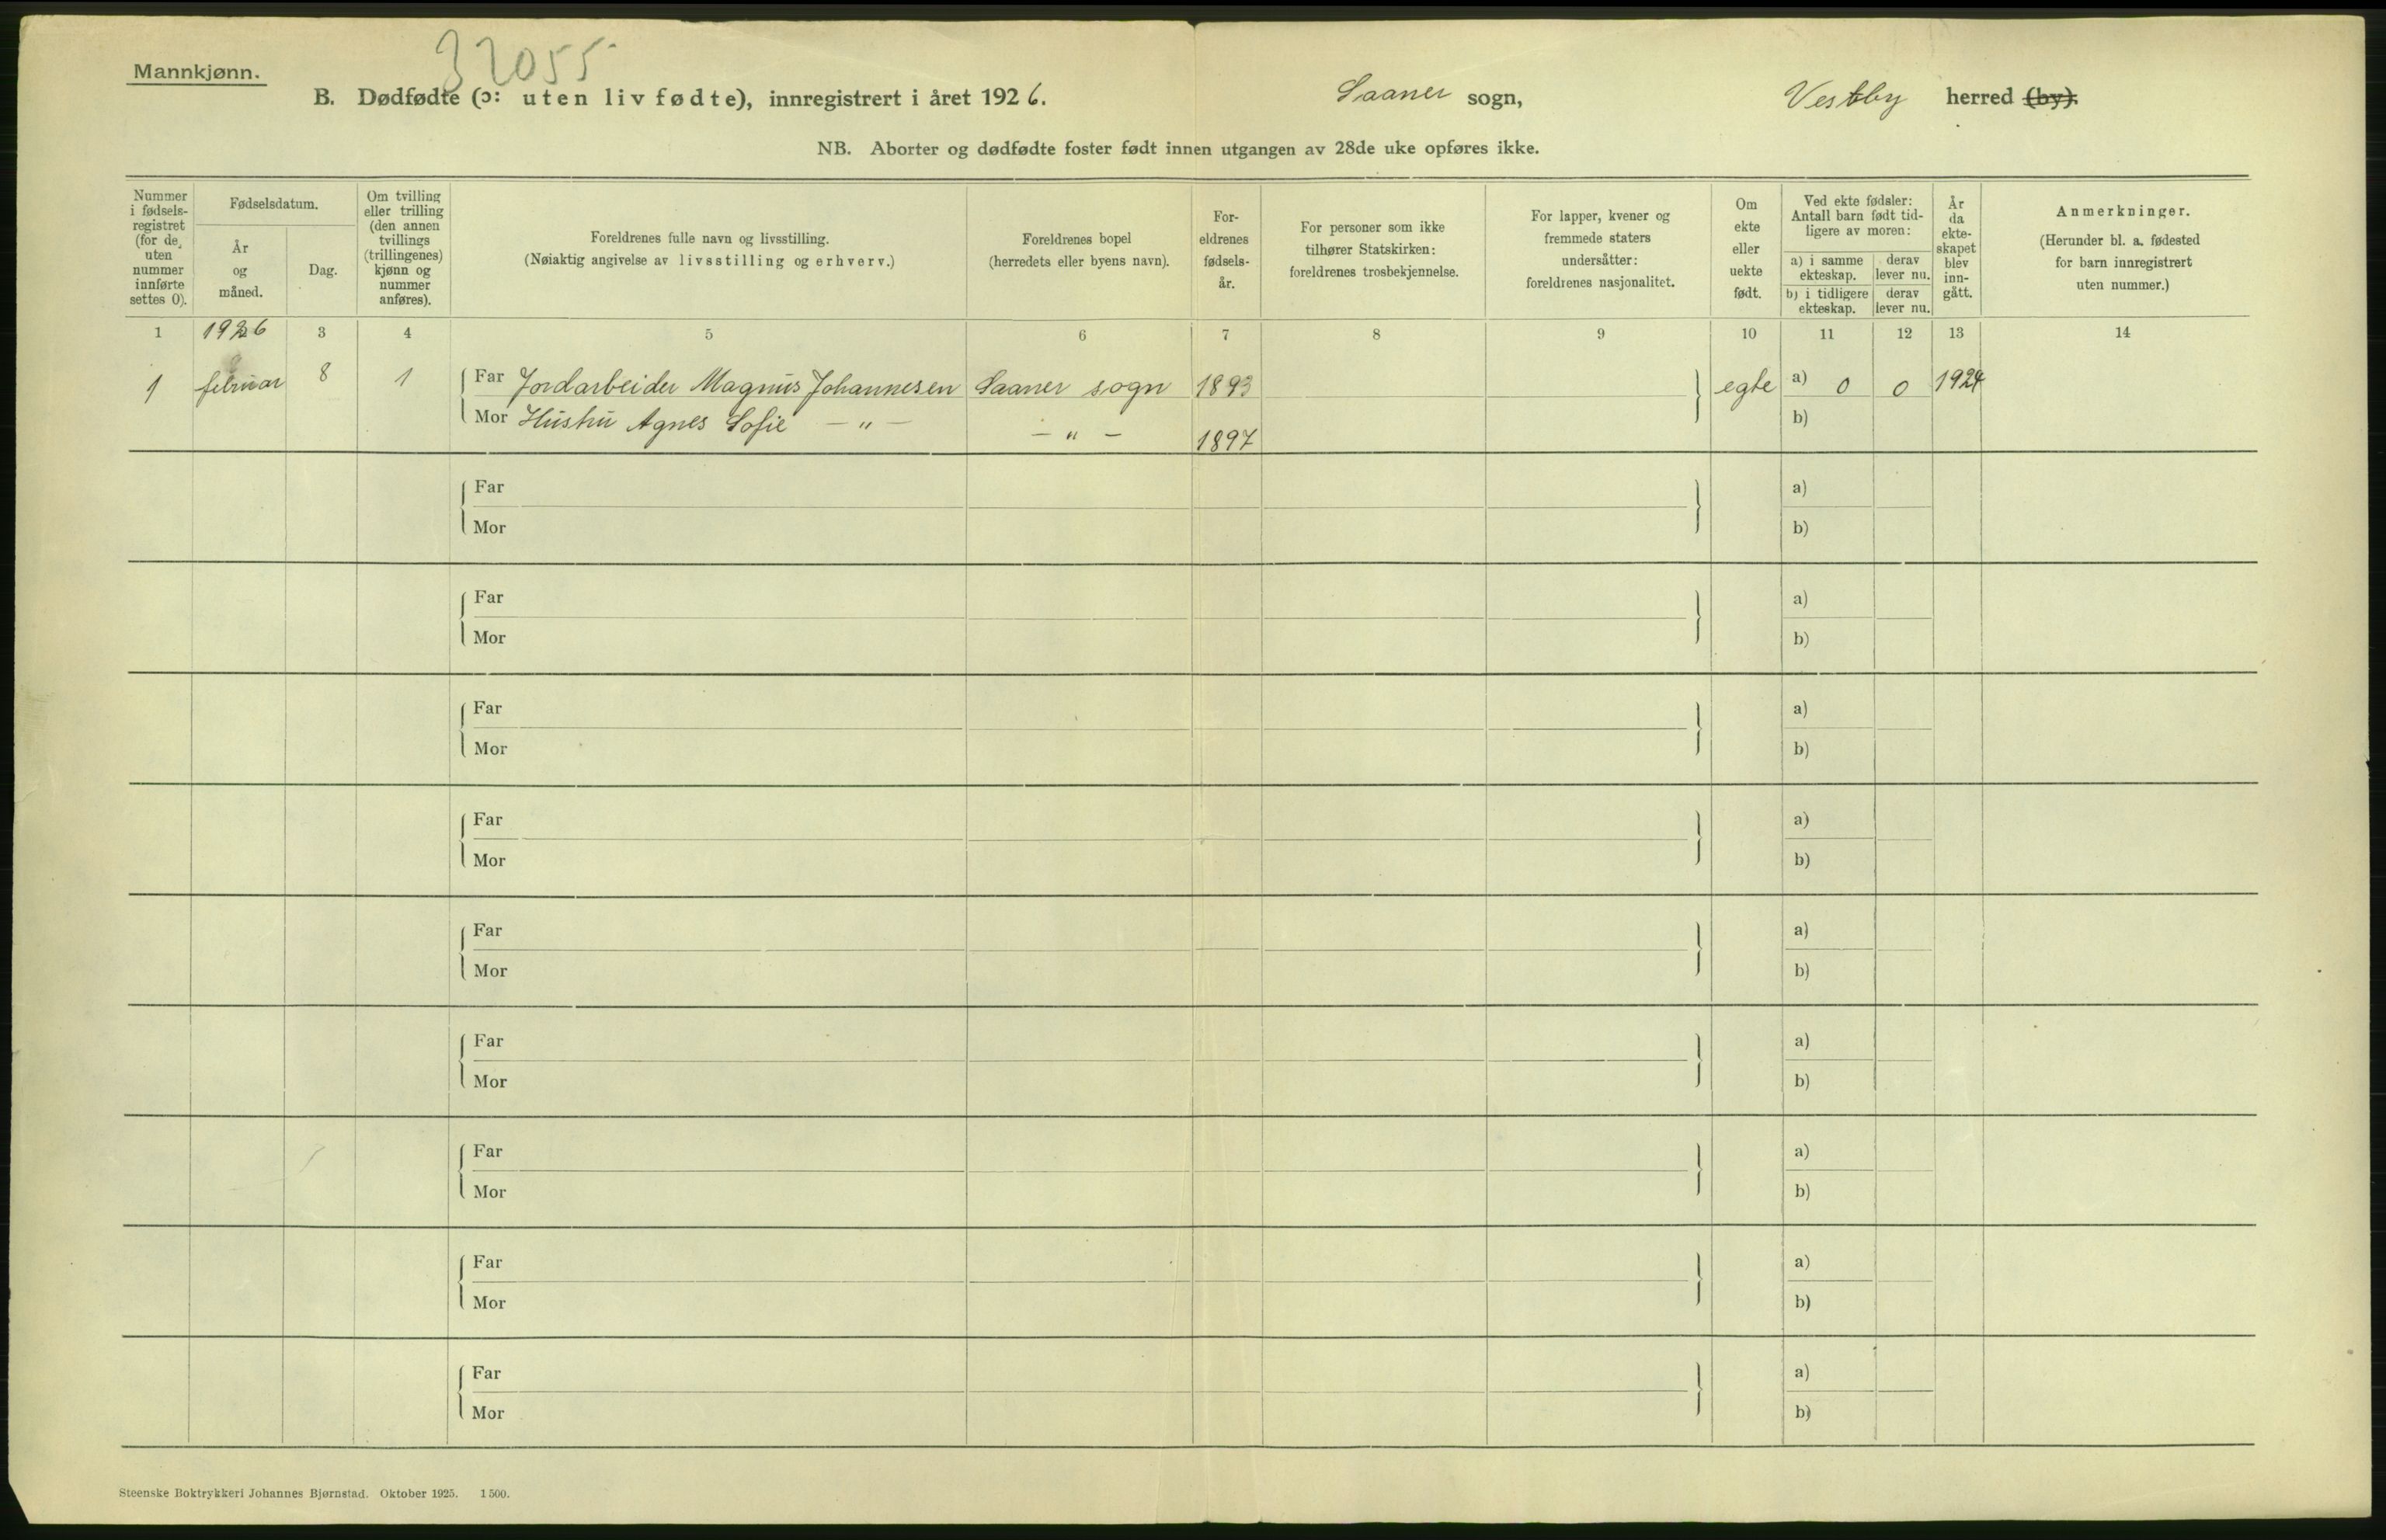 32055
Mannkjønn.
B. Dødfødte (ɔ: uten liv fødte), innregistrert i året 1926. Saaner sogn, Vestby herred (by).
NB. Aborter og dødfødte foster født innen utgangen av 28de uke opføres ikke.
Nummer
i fødsels-
registret
(for de
uten
nummer
innførte
settes 0).
Fødselsdatum.
År
og
måned.
Dag.
Om tvilling
eller trilling
(den annen
tvillings
(trillingenes)
kjønn og
nummer
anføres).
Foreldrenes fulle navn og livsstilling.
(Nøiaktig angivelse av livsstilling og erhverv.)
Foreldrenes bopel
(herredets eller byens navn).
For-
eldrenes
fødsels-
år.
For personer som ikke
tilhører Statskirken:
foreldrenes trosbekjennelse.
For lapper, kvener og
fremmede staters
undersåtter:
foreldrenes nasjonalitet.
Om
ekte
eller
uekte
født.
Ved ekte fødsler:
Antall barn født tid-
ligere av moren:
a) i samme
ekteskap.
derav
lever nu.
b) i tidligere
ekteskap.
derav
lever nu.
År
da
ekte-
skapet
blev
inn-
gått.
Anmerkninger.
(Herunder bl. a. fødested
for barn innregistrert
uten nummer.)
1 1926 3 4 5 6 7 8 9 10 11 12 13 14
1 februar 8 1 Far Jordarbeider Magnus Johannesen Saaner sogn 1893 egte a) 0 0 1924
Mor Hustru Agnes Sofie — „ — — „ — 1897 b)
Far a)
Mor b)
Far a)
Mor b)
Far a)
Mor b)
Far a)
Mor b)
Far a)
Mor b)
Far a)
Mor b)
Far a)
Mor b)
Far a)
Mor b)
Far a)
Mor b)
Steenske Boktrykkeri Johannes Bjørnstad. Oktober 1925. 1500.